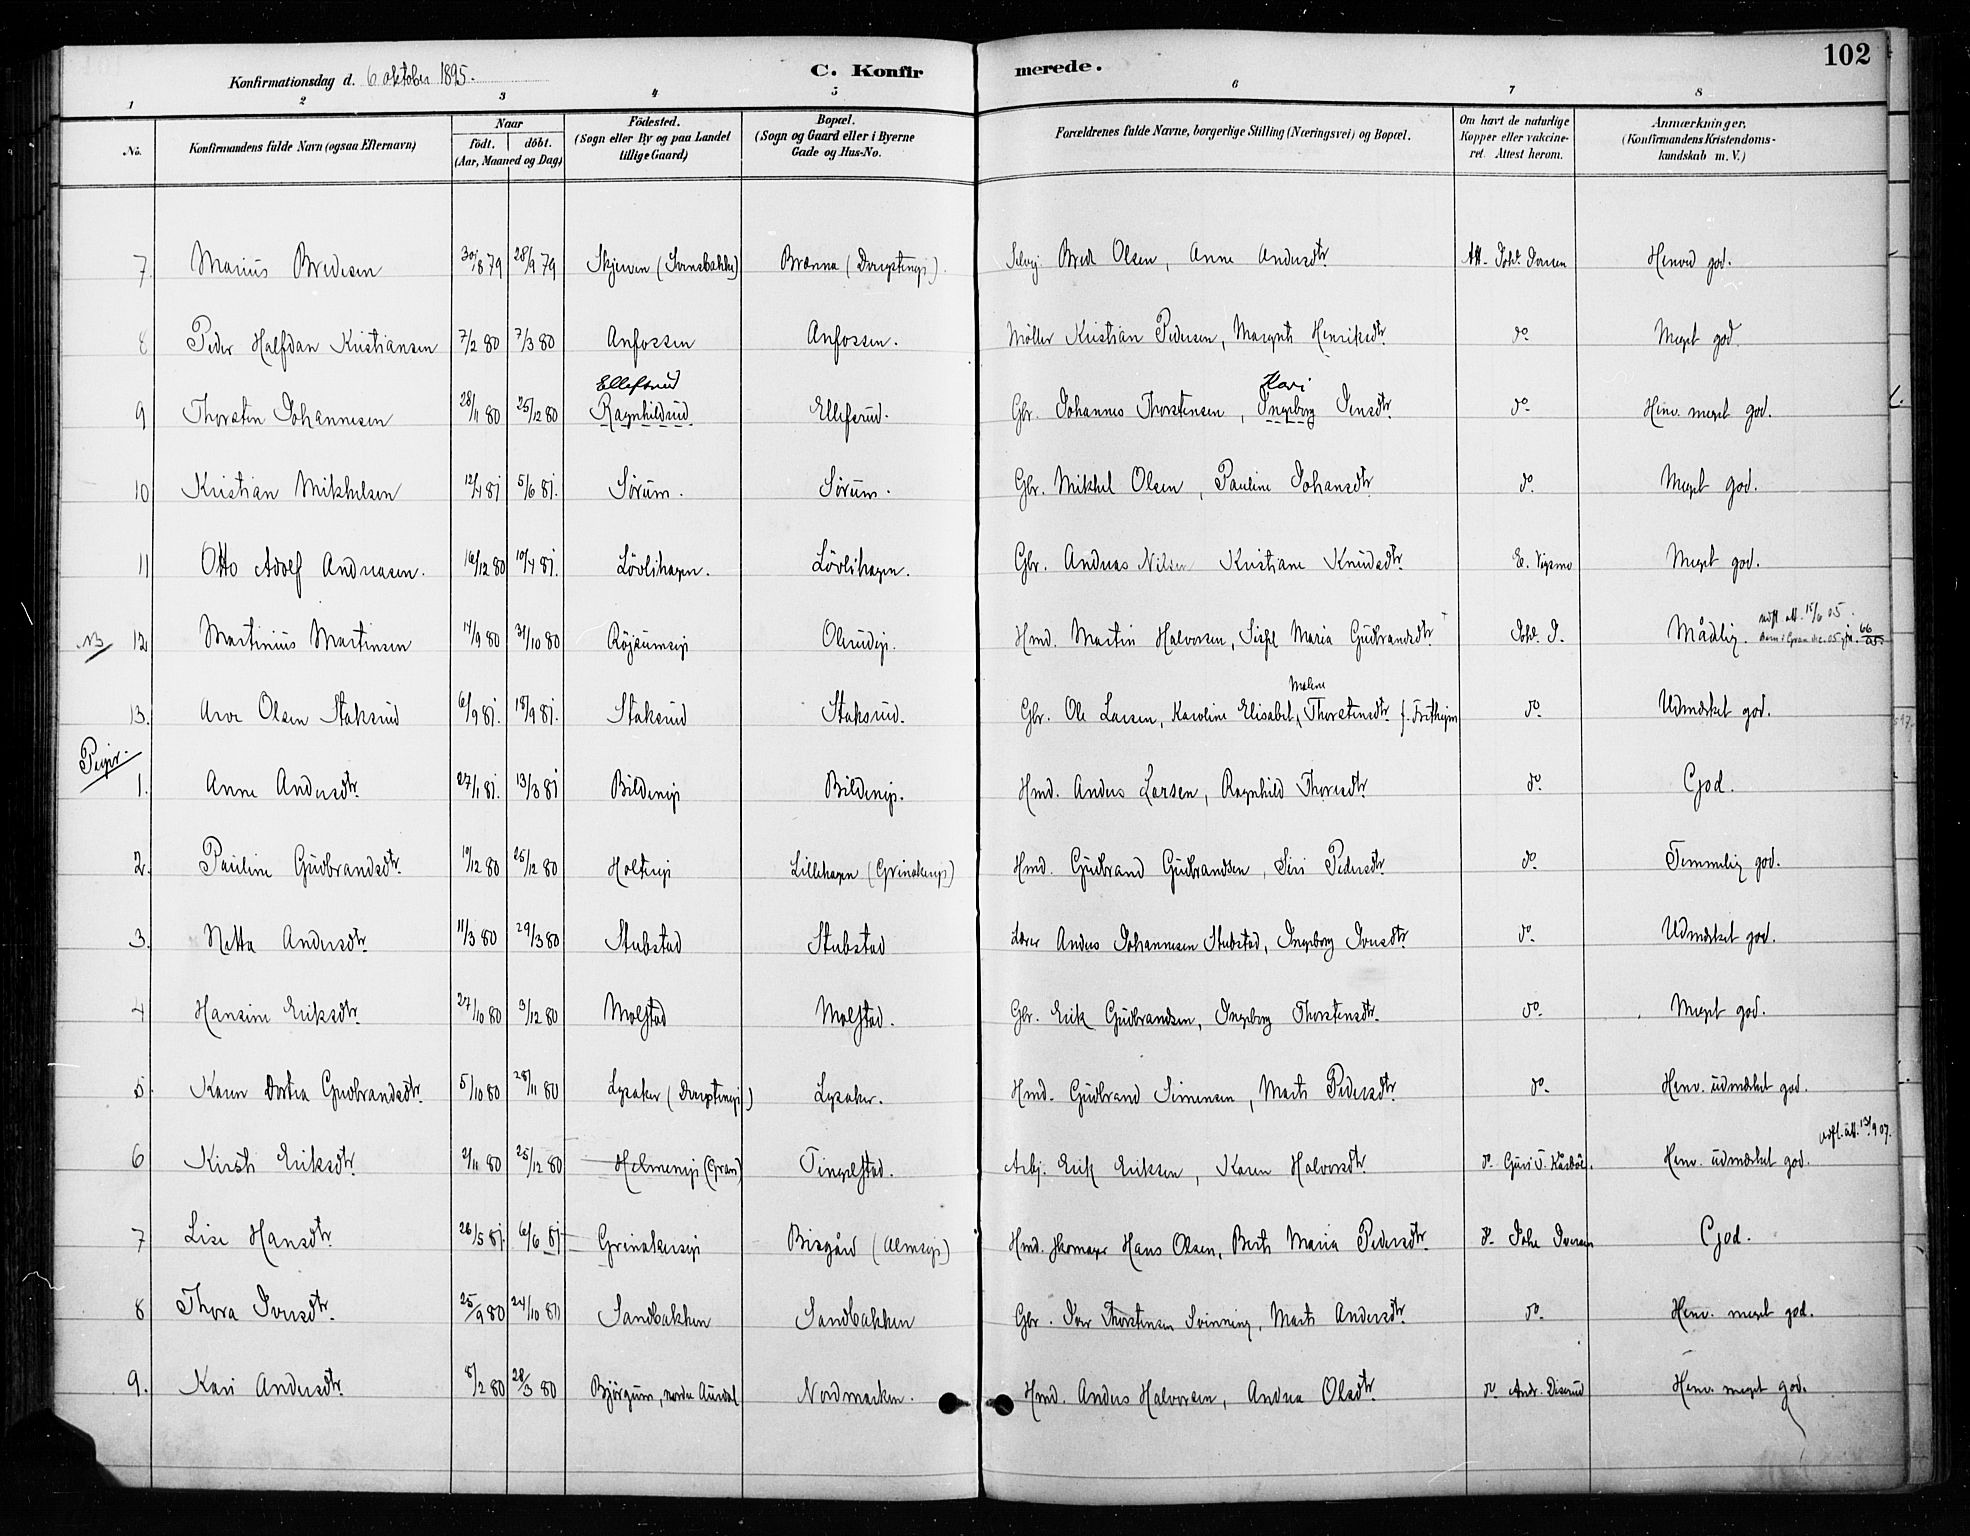 102
Konfirmationsdag d. 6 oktober 1895.
C. Konfirmerede.
1 2 3 4 5 6 7 8
No. Konfirmandens fulde Navn (ogsaa Efternavn) Naar født. døbt. (Aar, Maaned og Dag) Fødested. (Sogn eller By og paa Landet tillige Gaard) Bopæl. (Sogn og Gaard eller i Byerne Gade og Hus-No. Forældrenes fulde Navne, borgerlige Stilling (Næringsvei) og Bopæl. Om havt de naturlige Kopper eller vakcineret. Attest herom. Anmærkninger, (Konfirmandens Kristendomskundskab m. V.)
7. Marius Bredesen 30/8 79 28/9 79 Skjerven Brænna Selvej Brede Olsen, Anne Andersdtr. Att. Johs. Iversen Henved god.
8 Peder Halfdan Kristiansen 7/2 80 7/3 80 Anfossen Anfossen. Møller Kristian Pedersen, Margrete Henriksdtr. do. Meget god.
Ellefsrud Kari
9 Thorsten Johannesen 28/11 80 25/12 80 Ragnhildrud Ellefsrud. Gbr. Johannes Thorstensen, Ingeborg Jensdtr. do. Henv. meget god.
10 Kristian Mikkelsen 12/4 81 5/6 81. Sørum. Sørum. Gbr. Mikkel Olsen, Pauline Johansdtr. do. Meget god.
11 Otto Adolf Andreasen. 16/12 80 10/4 81. Løvlihagen. Løvlihagen. Gbr. Andreas Nilsen Kristiane Knudsdtr. E. Vigsmo Meget god.
NB 12 Martinius Martinsen 14/9 80 31/10 80 Røjsumsejr Olerudejr. Hmd. Martin Halvorsen, Maria Gudbrandsdtr. Johs. I. Mådlig. udfl. att. 15/6 05.
Malene
13. Arve Olsen Staksrud 6/9 81. 18/9 81. Staksrud Staksrud. Gbr. Ole Larsen, Karoline Elisabet Thorstensdtr. f. Fritheim do. Udmærket god.
Piger.
1. Anne Andersdtr. 27/1 81. 13/3 81 Bildenejr Bildenejr. Hmd. Anders Larsen, Ragnhild Thoresdtr. do. God.
2. Pauline Gudbrandsdtr. 19/12 80 25/12 80 Lillehagen (Grinakerejr) Hmd. Gudbrand Gudbrandsen, Siri Pedersdtr. do. Temmelig god.
3. Netta Andersdtr. 11/3 80 29/3 80 Stubstad Stubstad Lærer Anders Johannesen Stubstad, Ingeborg Iversdtr. do. Udmærket god.
4 Hansine Eriksdtr. 27/10 80 3/12 80 Molstad Molstad. Gbr. Erik Gudbrandsen, Ingeborg Thorstensdtr. do. Meget god.
5. Karen Dortea Gudbrandsdtr. 5/10 80 28/11 80 Lysaker Lysaker. Hmd. Gudbrand Simensen, Marte Pedersdtr. do. Henv. udmærket god.
udfl. att. 13/9 07.
6 Kirsti Eriksdtr. 2/11 80 25/12 80 Helmenejr (Gran) Tingelstad. Arbj. Erik Eriksen, Karen Halvorsdtr. do. Henv. udmærket god.
7 Lise Hansdtr. 26/5 81. 6/6 81 Grinakersejr Bisgård (Almsejr) Hmd. Skomager Hans Olsen, Berte Maria Pedersdtr. do. Johs Iversen God.
8 Thora Iversdtr. 25/9 80 24/10 80 Sandbakken Sandbakken Gbr. Iver Thorstensen Svinning, Marte Andersdtr. do. Henv. meget god.
9. Kari Andersdtr. 8/2 80 28/3 80 Bjørgum, nordre Aurdal Nordmarken. Hmd. Anders Halvorsen, Andrea Olsdtr. do. Andr. Diserud Henv. meget god.